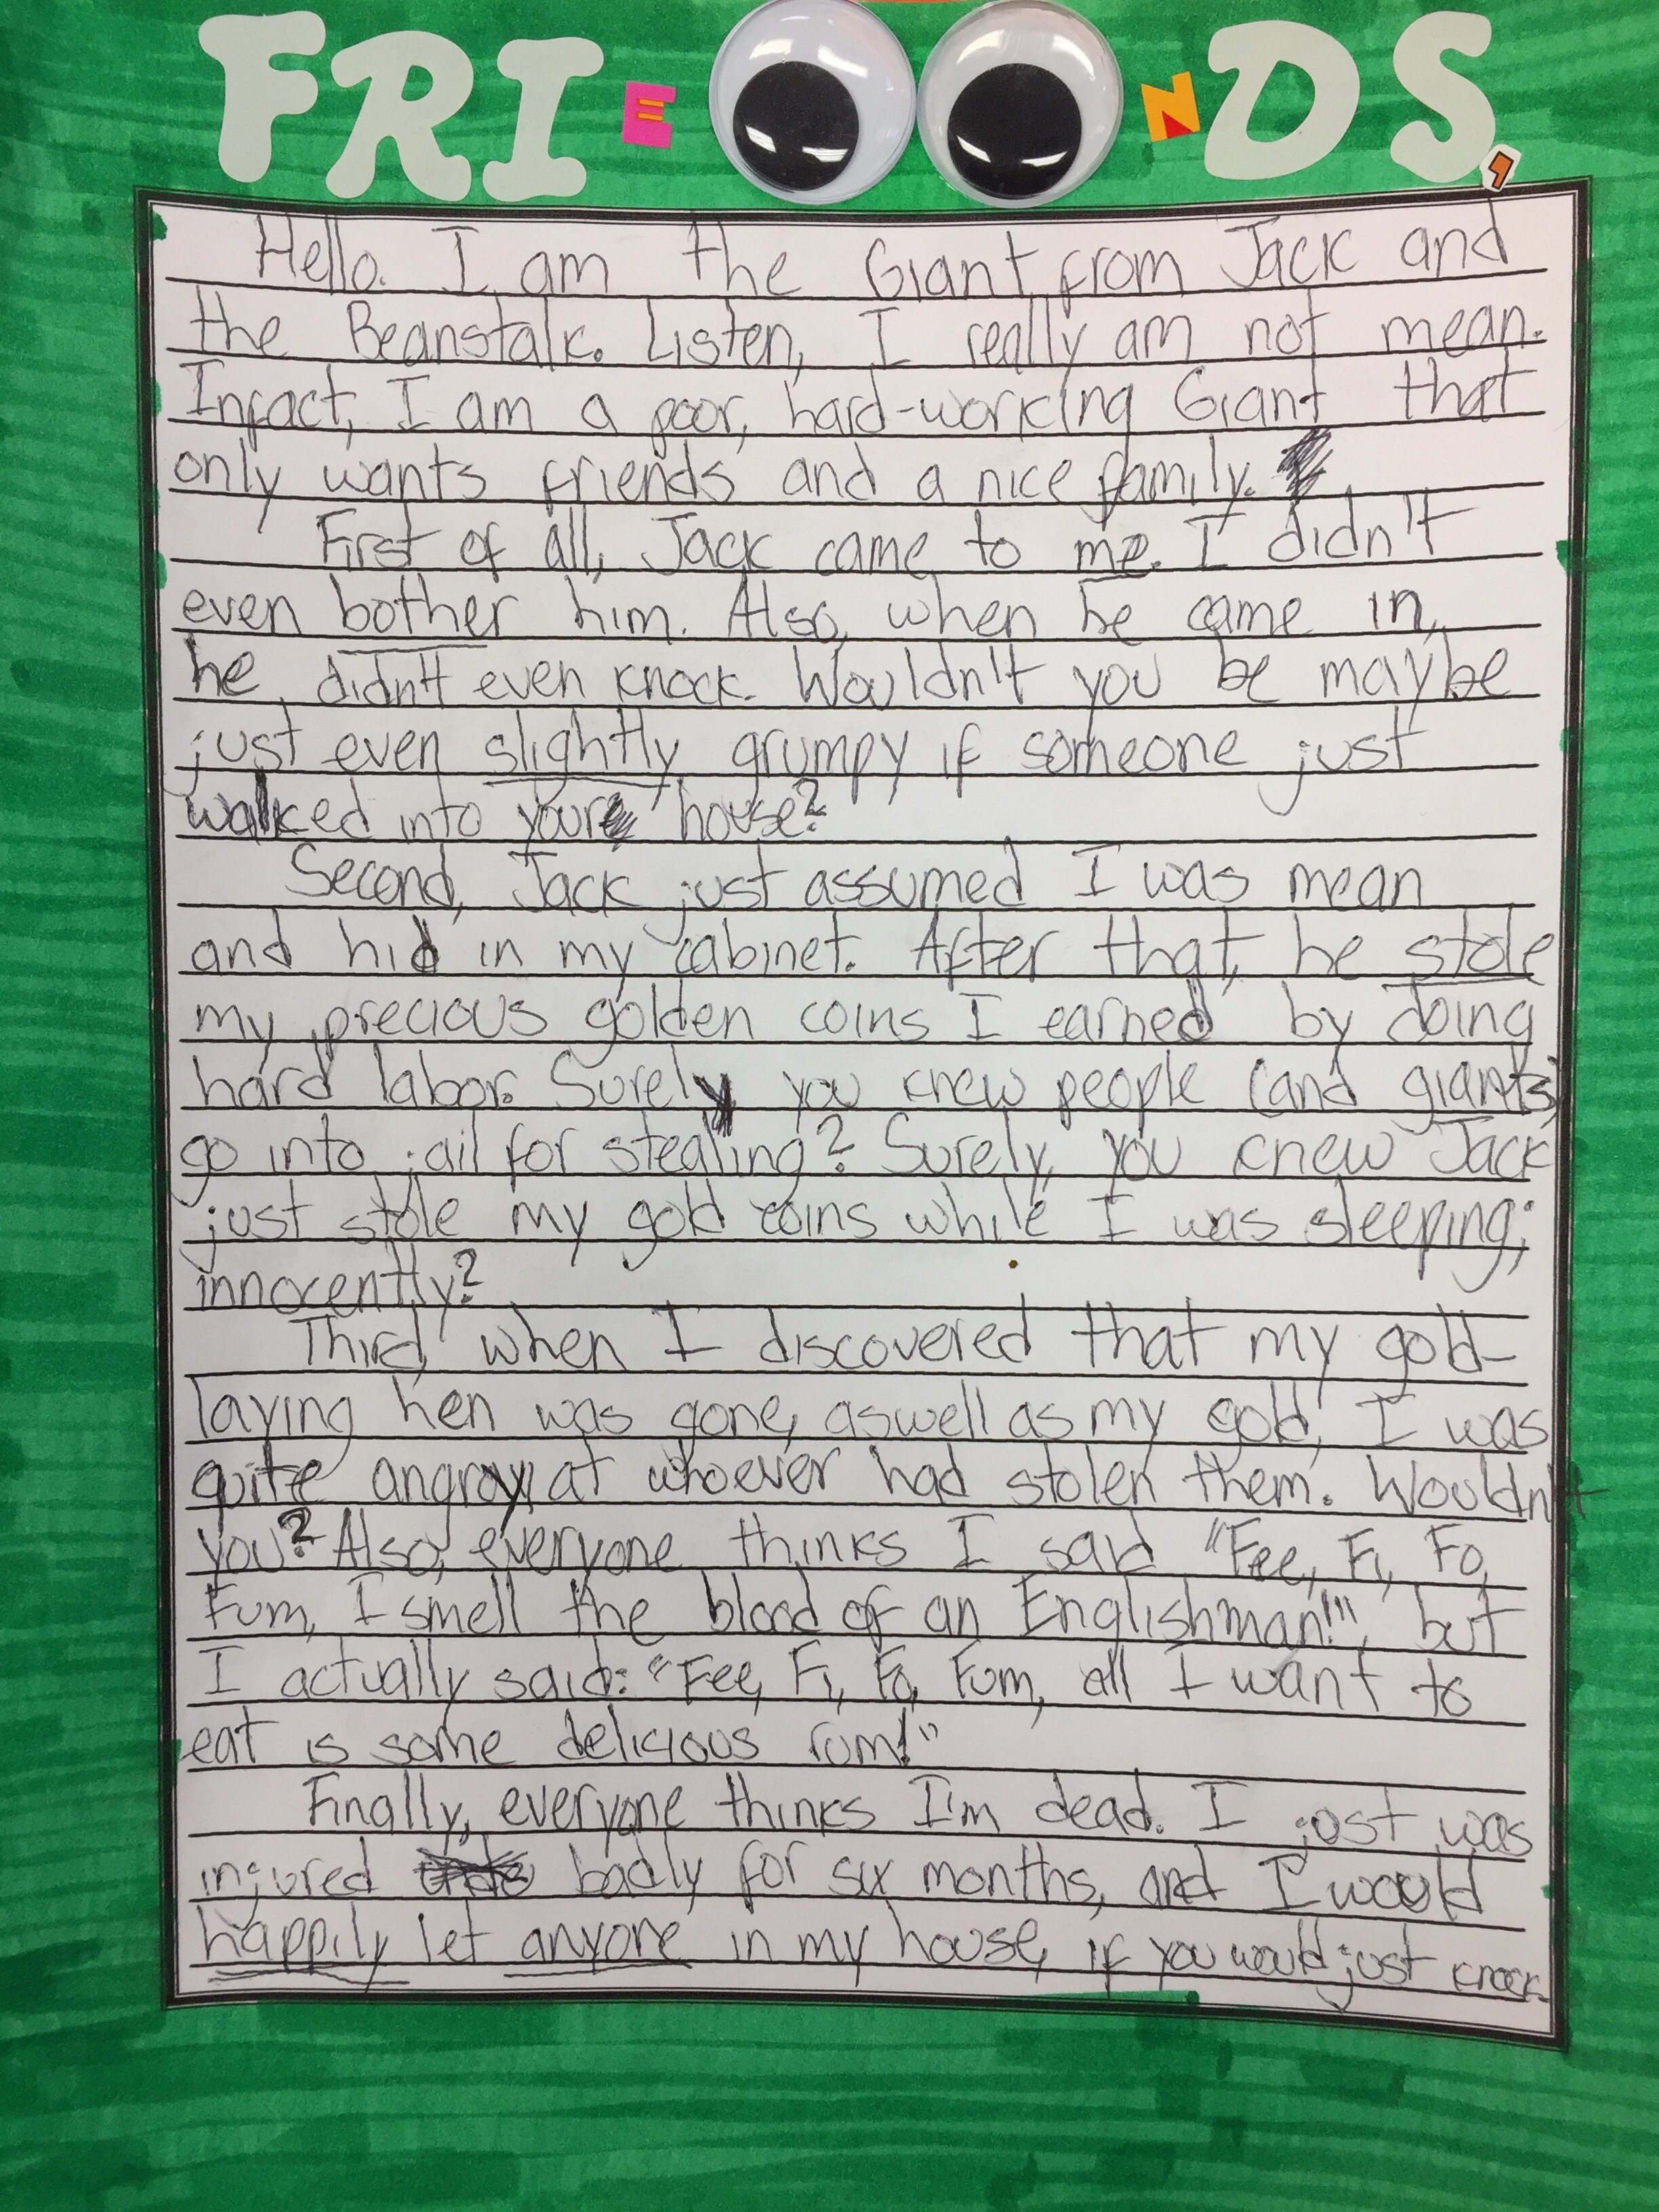 FRIENDS,
Hello. I am the Giant from Jack and
the Beanstalk. Listen, I really am not mean.
Infact, I am a poor, hard-working Giant that
only wants friends and a nice family.
First of all, Jack came to me. I didn't
even bother him. Also, when he came in,
he didn't even knock. Wouldn't you be maybe
just even slightly grumpy if someone just
walked into your house?
Second, Jack just assumed I was mean
and hid in my cabinet. After that, he stole
my precious golden coins I earned by doing
hard labor. Surely you knew people (and giants)
go into jail for stealing? Surely, you knew Jack
just stole my gold coins while I was sleeping;
innocently?
Third, when I discovered that my gold-
laying hen was gone, aswell as my gold, I was
quite angry, at whoever had stolen them. Wouldn't
you? Also, everyone thinks I said "Fee, Fi, Fo,
Fum, I smell the blood of an Englishman!", but
I actually said: "Fee, Fi, Fo, Fum, all I want to
eat is some delicious rum!"
Finally, everyone thinks I'm dead. I just was
injured badly for six months, and I would
happily let anyone in my house, if you would just knock.